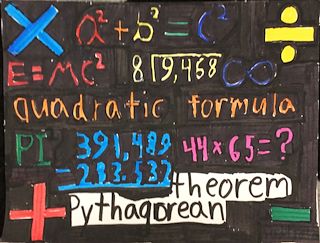 × a² + b² = c² ÷
E=MC² 8⟌9,458 ∞
quadratic formula
PI 391,489 44×65=?
− 233.532
theorem
+ Pythagorean −